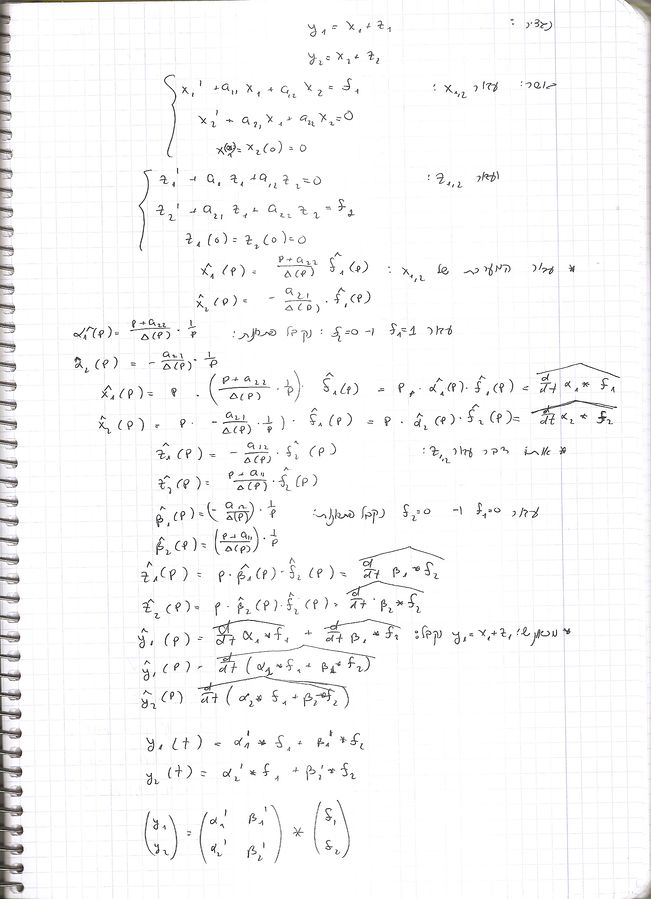 נגדיר: y₁ = x₁ + z₁
y₂ = x₂ + z₂
כאשר: עבור x₁,₂: x₁' + a₁₁ x₁ + a₁₂ x₂ = f₁
x₂' + a₂₁ x₁ + a₂₂ x₂ = 0
x₁(0) = x₂(0) = 0
ועבור z₁,₂: z₁' + a₁ z₁ + a₁₂ z₂ = 0
z₂' + a₂₁ z₁ + a₂₂ z₂ = f₂
z₁(0) = z₂(0) = 0
* עבור המערכת של x₁,₂: x̂₁(p) = (p+a₂₂)/Δ(p) f̂₁(p)
x̂₂(p) = - a₂₁/Δ(p) · f̂₁(p)
עבור f₁=1 ו- f₂=0: נקבל α̂₁(p) = (p+a₂₂)/Δ(p) · 1/p
α̂₂(p) = - a₂₁/Δ(p) · 1/p
x̂₁(p) = p · ((p+a₂₂)/Δ(p) · 1/p) · f̂₁(p) = p · α̂₁(p) · f̂₁(p) = d/dt α₁ * f₁
x̂₂(p) = p · - a₂₁/Δ(p) · 1/p) · f̂₁(p) = p · α̂₂(p) · f̂₂(p) = d/dt α₂ * f₂
* אותו דבר עבור z₁,₂: ẑ₁(p) = - a₁₂/Δ(p) · f̂₂(p)
ẑ₂(p) = (p+a₁₁)/Δ(p) · f̂₂(p)
עבור f₁=0 ו- f₂=0 נקבל β̂₁(p) = (- a₁₂/Δ(p)) · 1/p
β̂₂(p) = ((p+a₁₁)/Δ(p)) · 1/p
ẑ₁(p) = p · β̂₁(p) · f̂₂(p) = d/dt β₁ * f₂
ẑ₂(p) = p · β̂₂(p) · f̂₂(p) = d/dt · β₂ * f₂
* y₁ = x₁ + z₁ נקבל: ŷ₁(p) = d/dt α₁ * f₁ + d/dt β₁ * f₂
ŷ₁(p) = d/dt (α₁ * f₁ + β₁ * f₂)
ŷ₂(p) d/dt (α₂ * f₁ + β₂ * f₂)
y₁(t) = α₁' * f₁ + β₁' * f₂
y₂(t) = α₂' * f₁ + β₂' * f₂
(y₁ y₂) = (α₁' β₁' α₂' β₂') * (f₁ f₂)